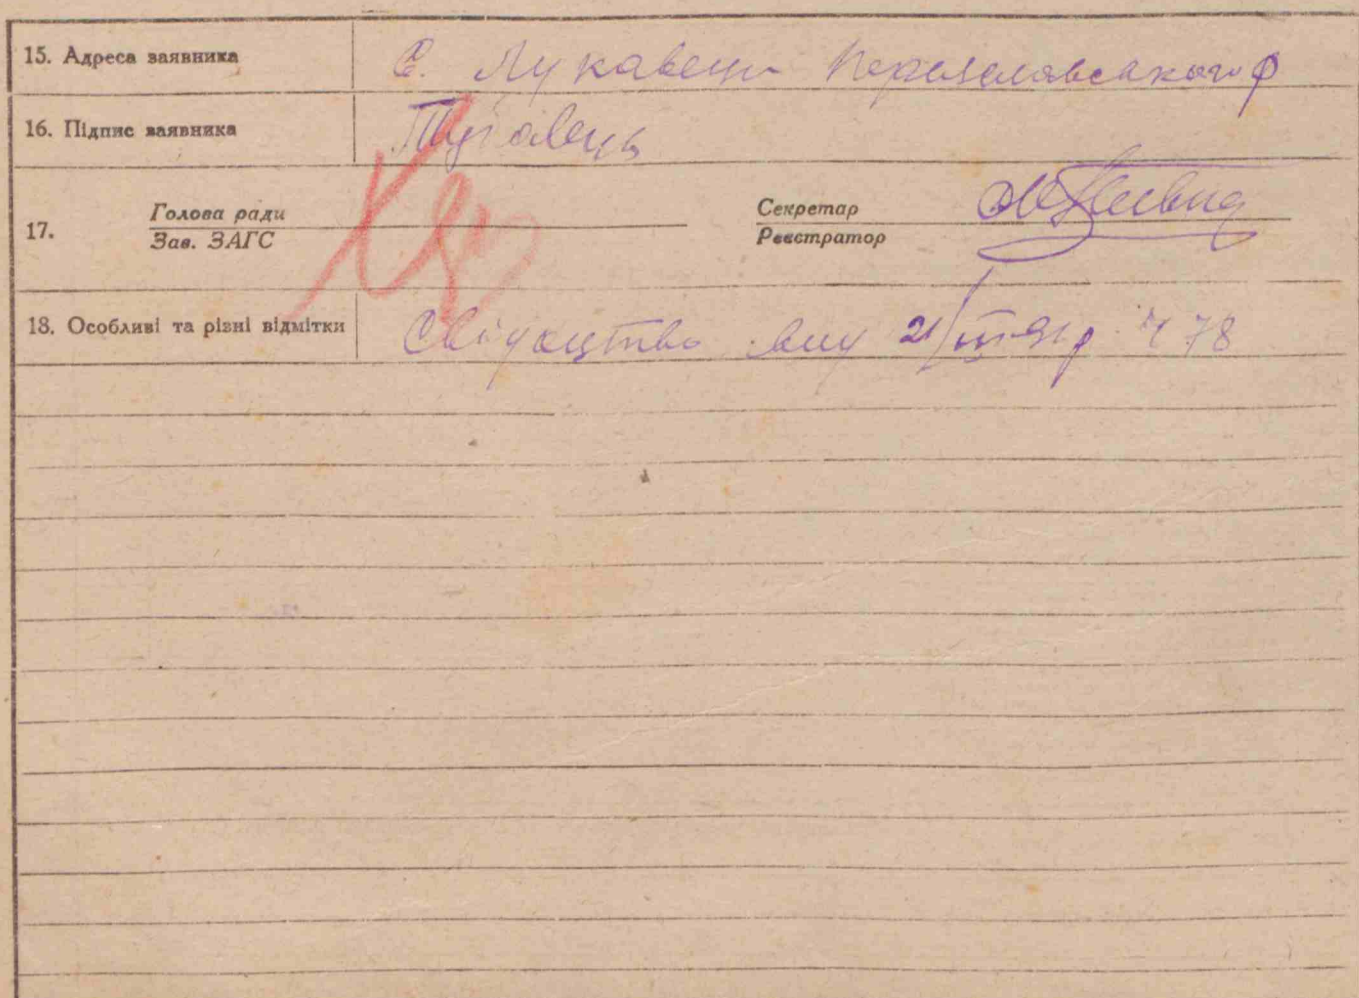 15. Адреса заявника С. Лукавеци Переяславського р
16. Підпис заявника
17. Голова ради Секретар
Зав. ЗАГС Реєстратор
18. Особливі та різні відмітки Свідоцтво 21/III № 78